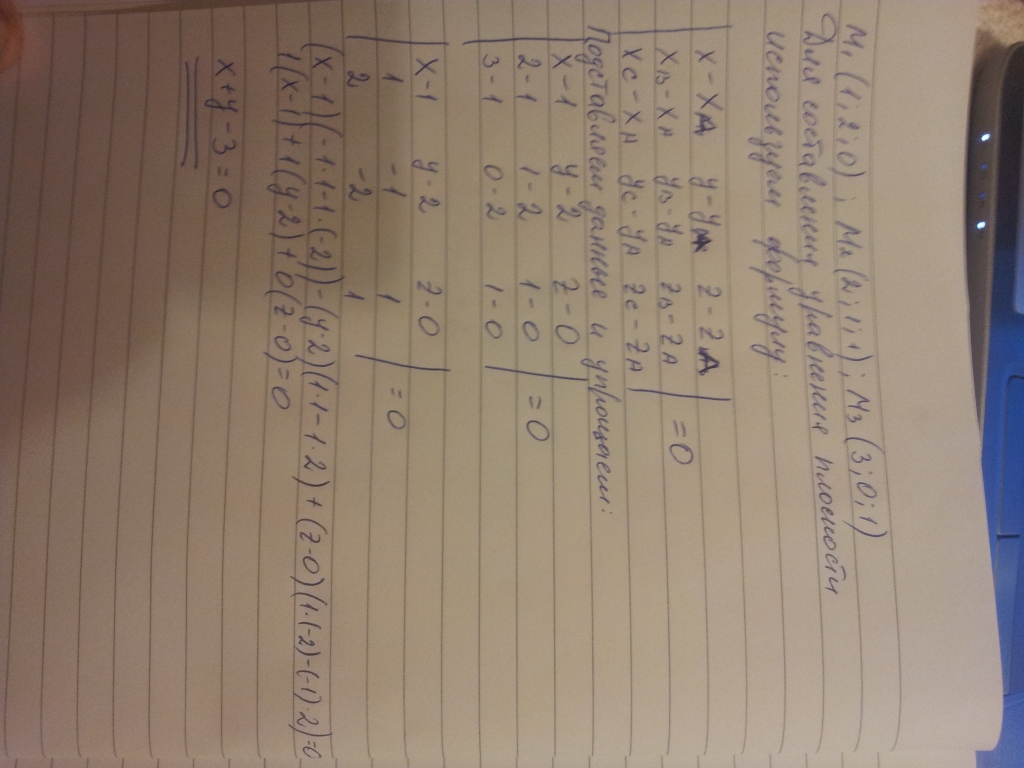 M₁ (1; 2; 0); M₂ (2; 1; 1); M₃ (3; 0; 1)
Для составления уравнения плоскости
используем формулу:
| x - xA y - yA z - zA |
| xB - xA yB - yA zB - zA | = 0
| xC - xA yC - yA zC - zA |
Подставляем данные и упрощаем:
| x - 1 y - 2 z - 0 |
| 2 - 1 1 - 2 1 - 0 | = 0
| 3 - 1 0 - 2 1 - 0 |
| x - 1 y - 2 z - 0 |
| 1 -1 1 | = 0
| 2 -2 1 |
(x-1)(-1·1-1·(-2))-(y-2)(1·1-1·2)+(z-0)(1·(-2)-(-1)·2)=0
1(x-1)+1(y-2)+0(z-0)=0
x+y-3=0